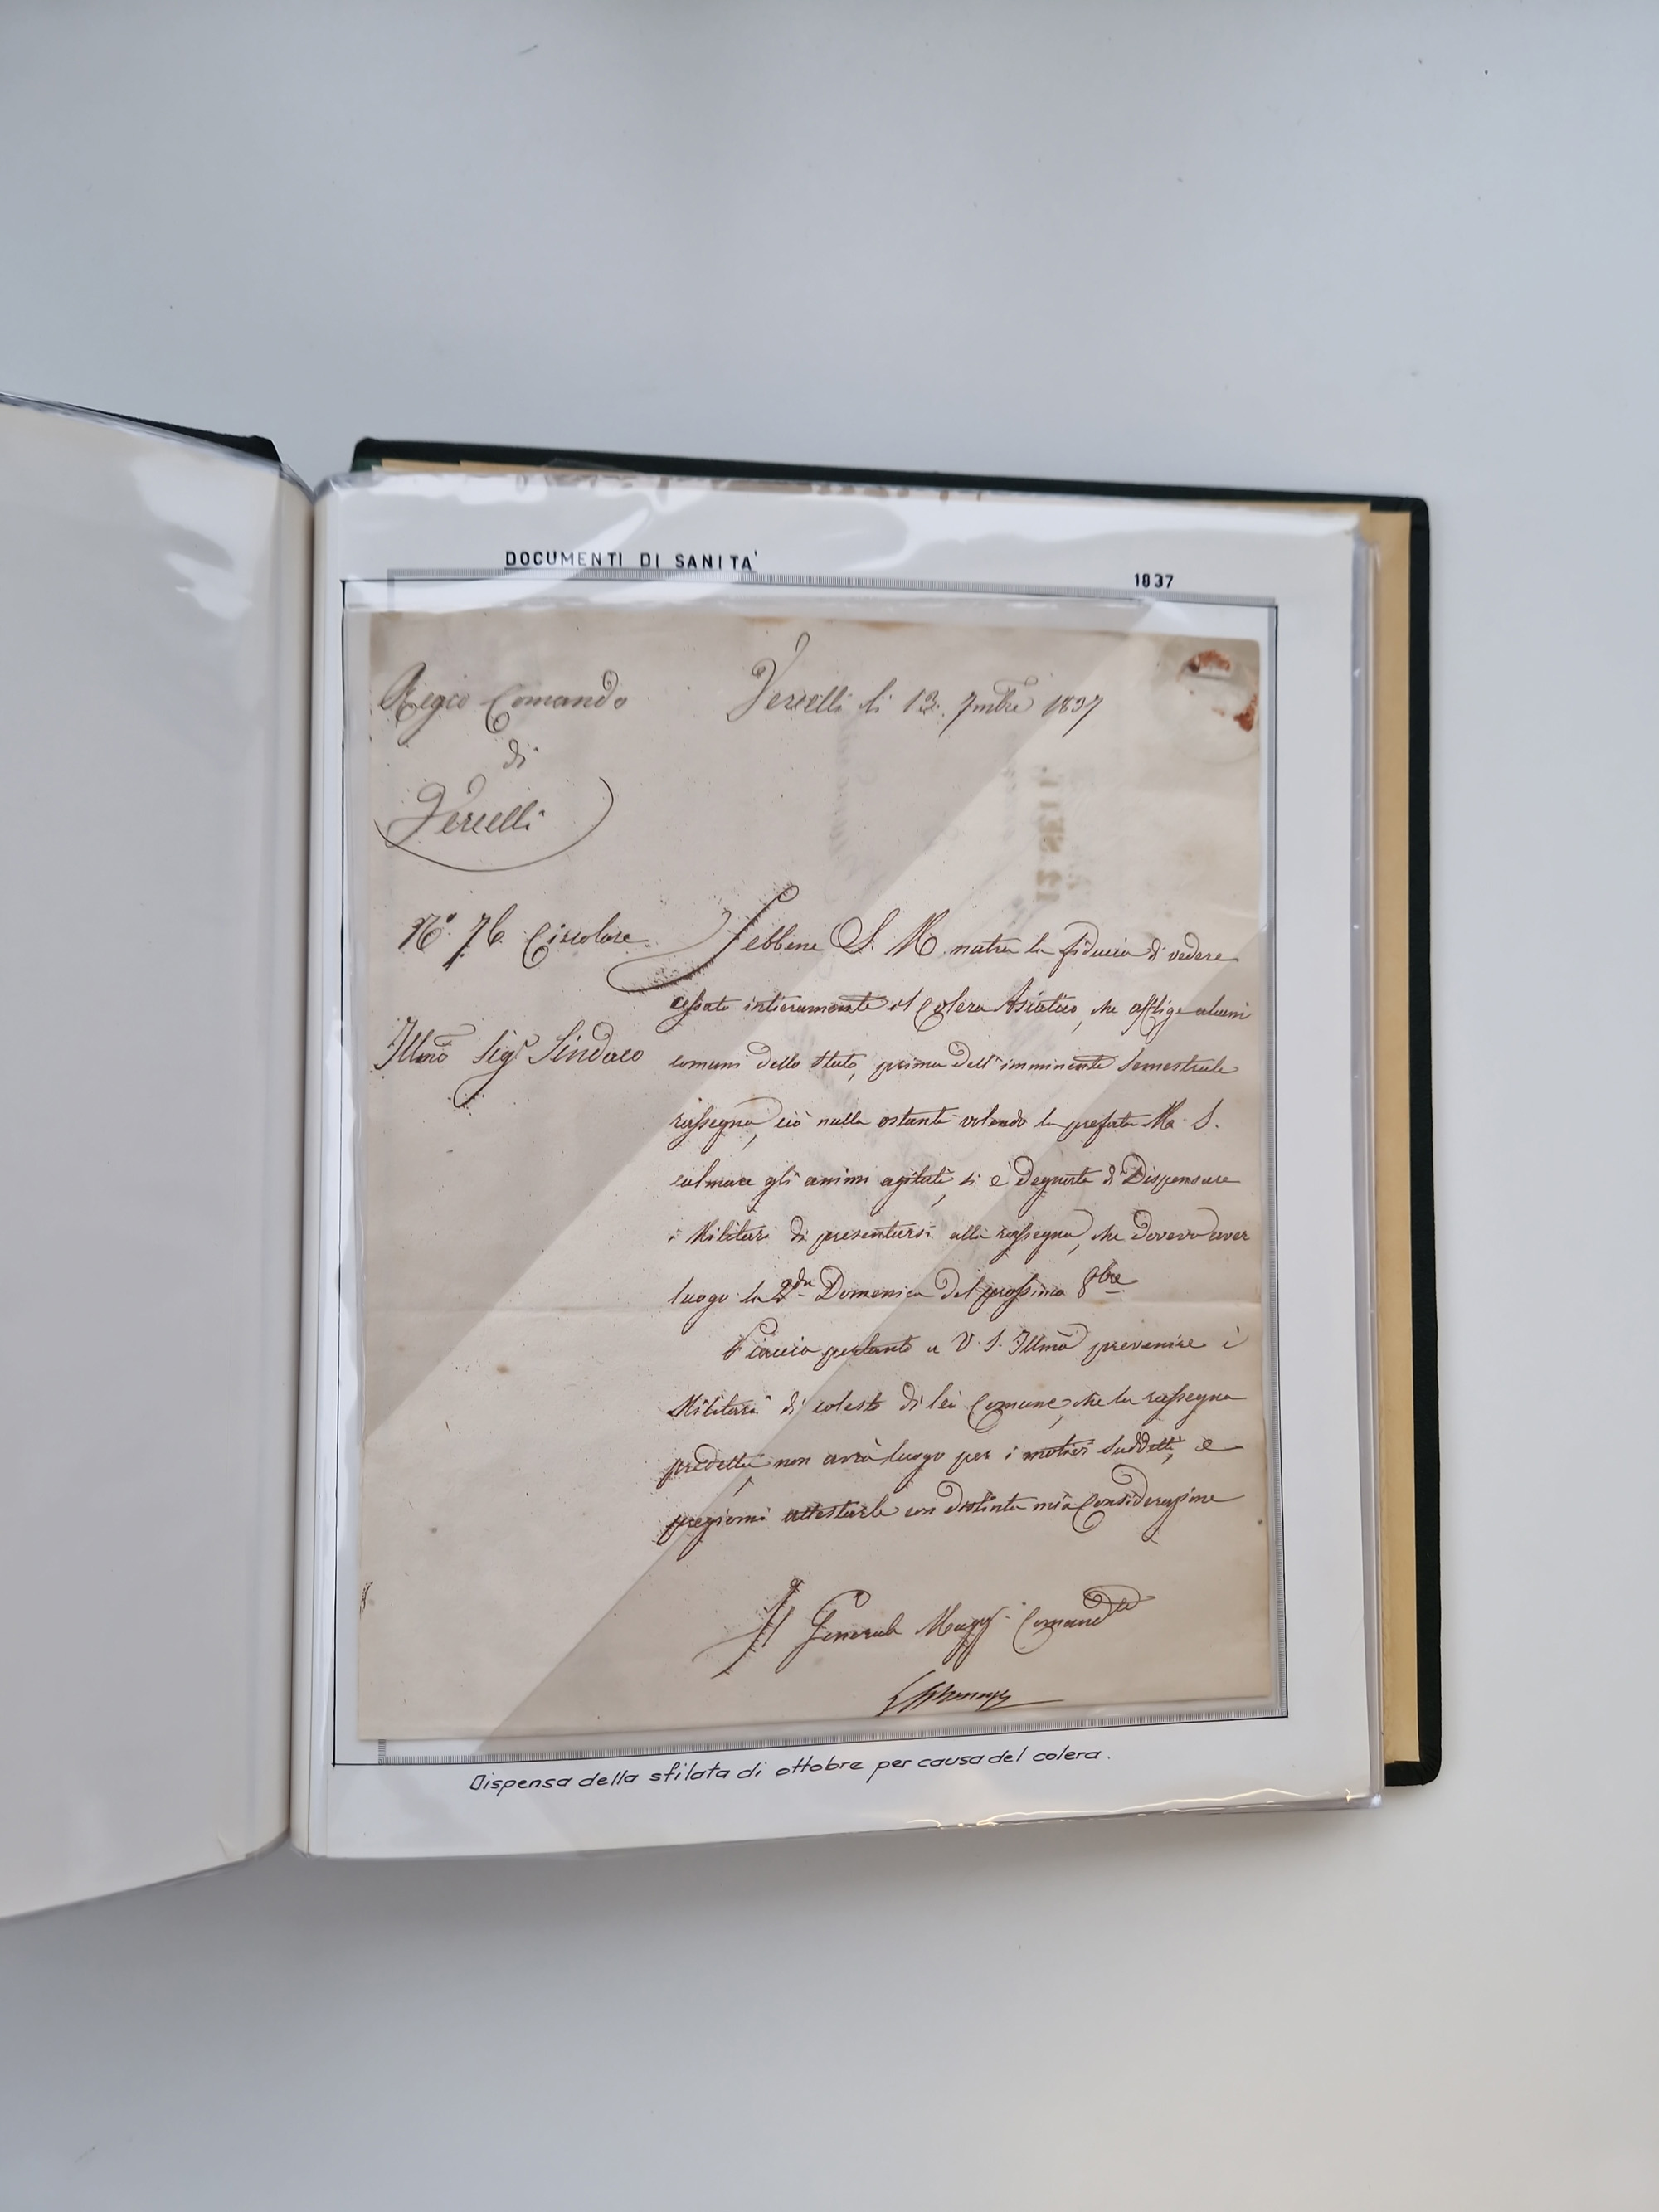 DOCUMENTI DI SANITA'
1837
Regio Comando
di
Vercelli
Vercelli li 13. 7mbre 1837
N.° 76. Circolare
Illmo Sigr Sindaco
Sebbene S. M. nutra la fiducia di vedere
cessato intieramente il Colera Asiatico, che afflige alcuni
comuni dello Stato, prima dell'imminente semestrale
rassegna, ciò nulla ostante volendo la prefata M. S.
calmare gli animi agitati, si è degnata di Dispensare
i Militari di presentarsi alla rassegna, che doveva aver
luogo la 2da Domenica del prossimo 8bre
Piaccia pertanto a V. S. Illma prevenire i
Militari di cotesto di lei Comune, che la rassegna
predetta non avrà luogo per i motivi suddetti, e
pregiomi attestarle con distinta mia Considerazione
Il Generale Magg. Comandte
Dispensa della sfilata di ottobre per causa del colera.